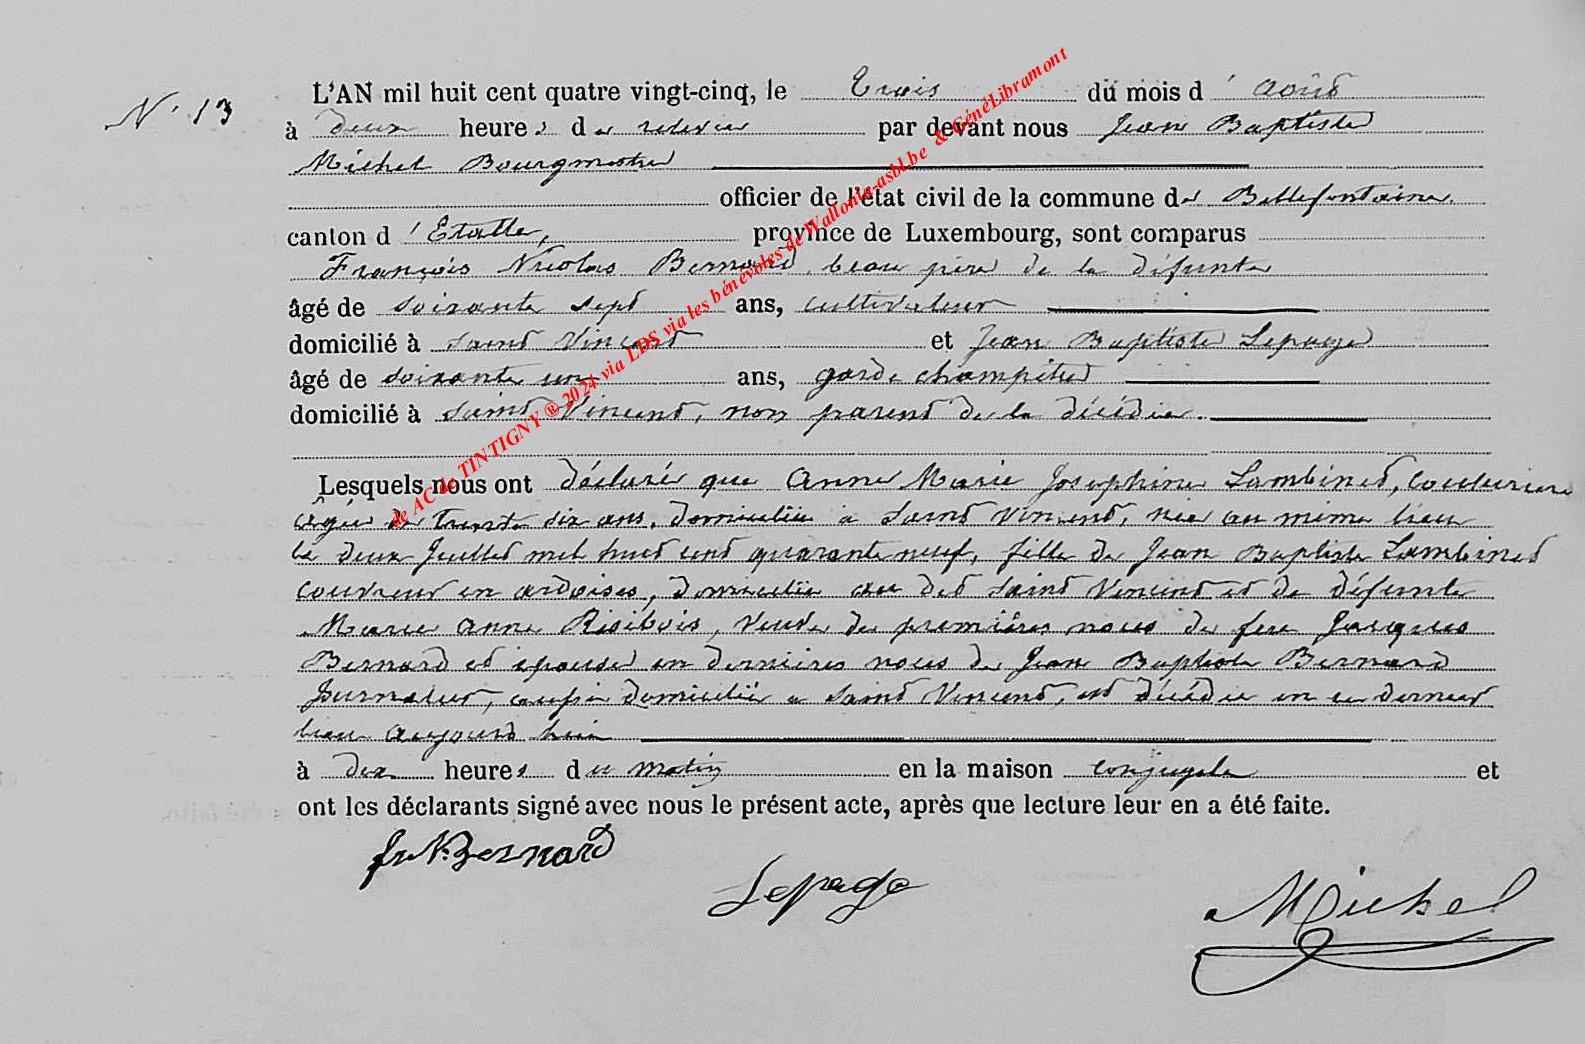 N° 13
L'AN mil huit cent quatre vingt-cinq, le Trois du mois d'août
à deux heures de relevée par devant nous Jean Baptiste
Michel Bourgmestre
officier de l'état civil de la commune de Bellefontaine,
canton d'Etalle, province de Luxembourg, sont comparus
François Nicolas Bernard, beau père de la défunte
âgé de soixante sept ans, cultivateur
domicilié à Saint Vincent et Jean Baptiste Lepage
âgé de soixante un ans, garde champêtre
domicilié à Saint Vincent, non parent de la décédée.
Lesquels nous ont déclaré que Anne Marie Josephine Lambinet, couturière
agée de trente six ans, domiciliée à Saint Vincent, née au même lieu
le deux Juillet mil huit cent quarante neuf, fille de Jean Baptiste Lambinet
couvreur en ardoises, domicilié au dit Saint Vincent et de défunte
Marie Anne Risibois, veuve de premières noces de feu Jacques
Bernard et épouse en dernières noces de Jean Baptiste Bernard
Journalier, aussi domicilié à Saint Vincent, est décédée en ce dernier
lieu aujourd'hui
à dix heures du matin en la maison conjugale et
ont les déclarants signé avec nous le présent acte, après que lecture leur en a été faite.
fr N. Bernard
Lepage
Michel
de AC de TINTIGNY ® 2024 via LDS via les bénévoles de Wallonia-asbl.be & GénéLibramont